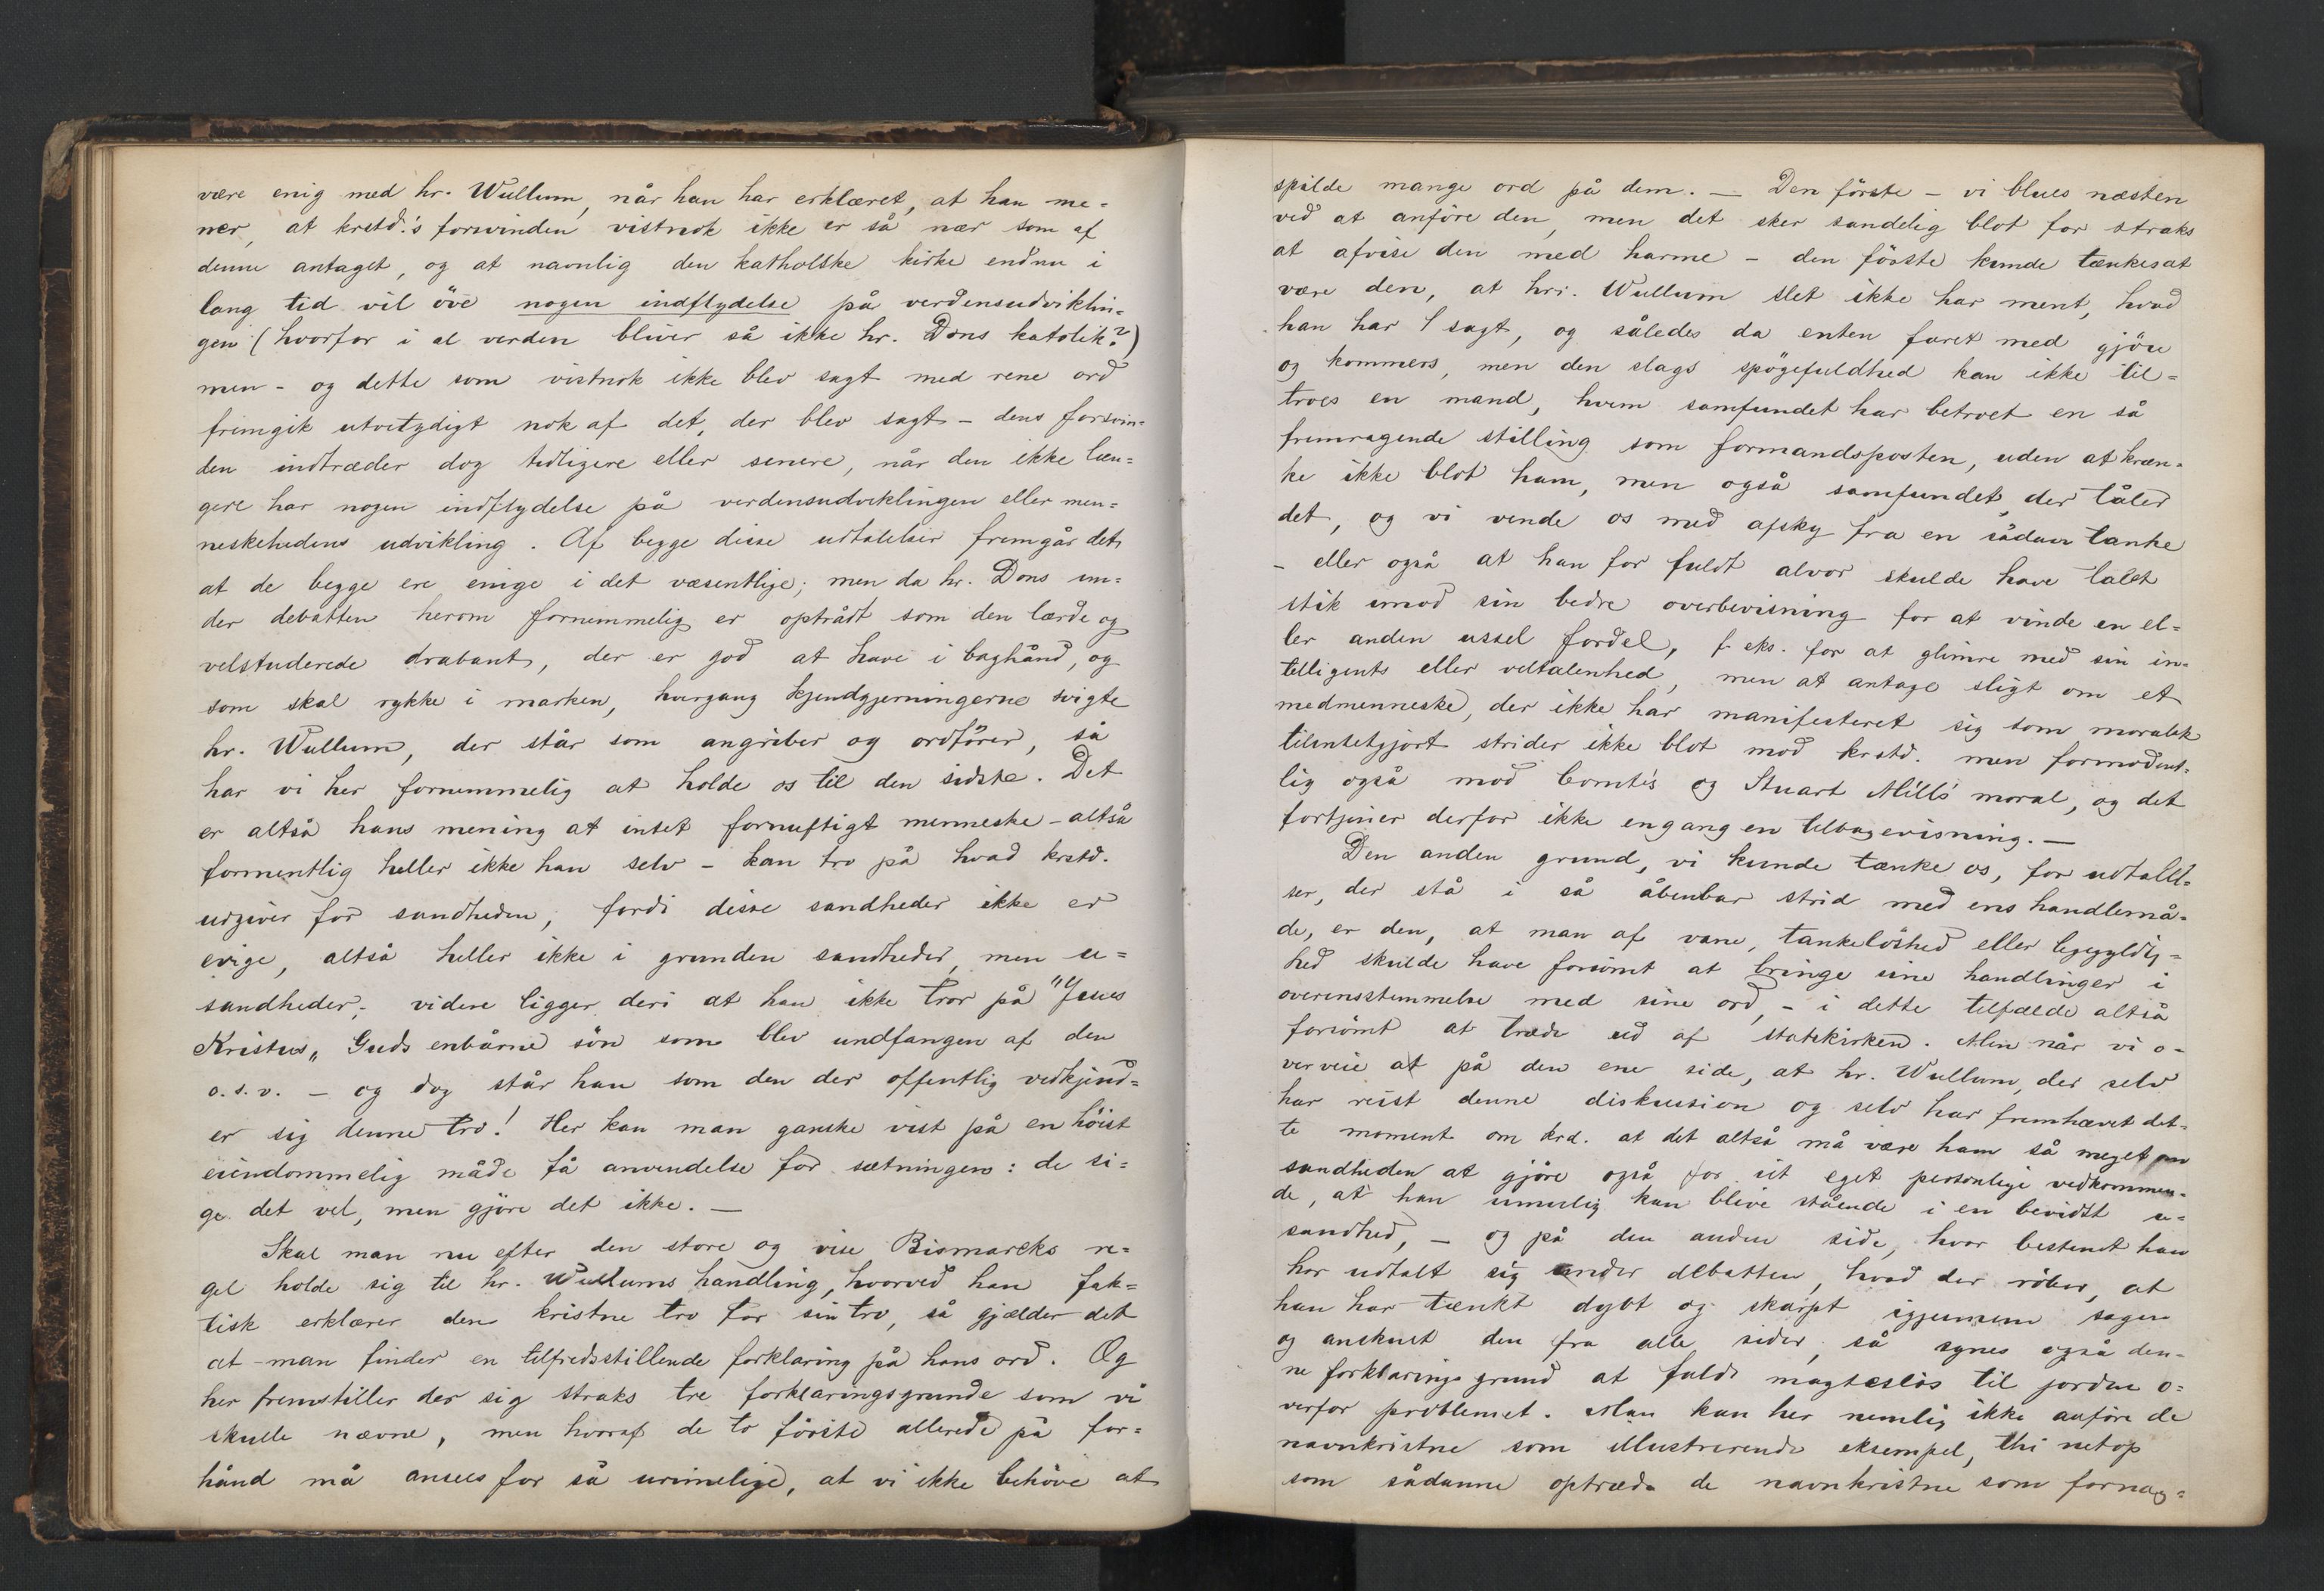 være enig med hr. Wullum, når han har erklæret, at han me-
ner, at krstd.'s forsvinden vistnok ikke er så nær som af
denne antaget, og at navnlig den katholske kirke endnu i
lang tid vil öve nogen indflydelse på verdensudviklin-
gen (hvorfor i al verden bliver så ikke hr. Dons katolik?)
men - og dette som vistnok ikke blev sagt med rene ord
fremgik utvetydigt nok af det, der blev sagt - dens forsvin-
den indtræder dog tidligere eller senere, når den ikke læn-
gere har nogen indflydelse på verdensudviklingen eller men-
neskehedens udvikling. Af begge disse udtalelser fremgår det,
at de begge ere enige i det væsentlige; men da hr. Dons un-
der debatten herom fornemmelig er optrådt som den lærde og
velstuderede drabant, der er god at have i baghånd, og
som skal rykke i marken, hvergang kjendgjerningerne svigte
hr. Wullum, der står som angriber og ordförer, så
har vi her fornemmelig at holde os til den sidste. Det
er altså hans mening at intet fornuftigt menneske - altså
formentlig heller ikke han selv - kan tro på hvad krstd.
udgiver for sandheden, fordi disse sandheder ikke er
evige, altså heller ikke i grunden sandheder, men u-
sandheder; videre ligger deri at han ikke tror på "Jesus
Kristus" Guds enbårne sön som blev undfangen af den
o.s.v. - og dog står han som den der offentlig vedkjend-
er sig denne tro! Her kan man ganske vist på en höist
eiendommelig måde få anvendelse for sætningen: de si-
ge det vel, men gjöre det ikke. -
Skal man nu efter den store og vise Bismarcks re-
gel holde sig til hr. Wullums handling, hvorved han fak-
tisk erklærer den kristne tro for sin tro, så gjælder det
at man finder en tilfredsstillende forklaring på hans ord. Og
her fremstiller der sig straks tre forklaringsgrunde som vi
skulle nævne, men hvoraf de to förste allerede på for-
hånd må ansees for så urimelige, at vi ikke behöve at
spilde mange ord på dem. - Den förste - vi blues næsten
ved at anföre den, men det sker sandelig blot for straks
at afvise den med harme - den förste kunde tænkes at
være den, at hr. Wullum slet ikke har ment, hvad
han har sagt, og således da enten faret med gjön
og kommers, men den slags spögefuldhed kan ikke til-
troes en mand, hvem samfundet har betroet en så
fremragende stilling som formandsposten, uden at kræn-
ke ikke blot ham, men også samfundet, der tåler
det, og vi vende os med afsky fra en sådan tanke
- eller også at han for fuldt alvor skulde have talt
stik imod sin bedre overbevisning for at vinde en el-
ler anden ussel fordel, f. eks. for at glimre med sin in-
telligents eller veltalenhed, men at antage sligt om et
medmenneske, der ikke har manifesteret sig som moralsk
tilintetgjort strider ikke blot mod krstd. men formodent-
lig også mod Comte's og Stuart Mill's moral, og det
fortjener derfor ikke engang en tilbagevisning. -
Den anden grund, vi kunde tænke os, for udtalel-
ser, der stå i så åbenbar strid med ens handlemå-
de, er den, at man af vane, tankelöshed eller ligegyldig-
hed skulde have forsömt at bringe sine handlinger i
overensstemmelse med sine ord, - i dette tilfælde altså
forsömt at træde ud af statskirken. Men når vi o-
verveie at på den ene side, at hr. Wullum, der selv
har reist denne diskussion og selv har fremhævet det-
te moment om krd. at det altså må være ham så meget om
sandheden at gjöre også for sit eget personlige vedkommen-
de, at han umulig kan blive stående i en bevidst u-
sandhed, - og på den anden side, hvor bestemt han
har udtalt sig under debatten, hvad der röber, at
han har tænkt dybt og skarpt igjennem sagen
og anskuet den fra alle sider, så synes også den-
ne forklaringsgrund at falde magteslös til jorden o-
verfor problemet. Man kan her nemlig ikke anföre de
navnkristne som illustrerende eksempel, thi netop
som sådanne optræde de navnkristne som fornæg-